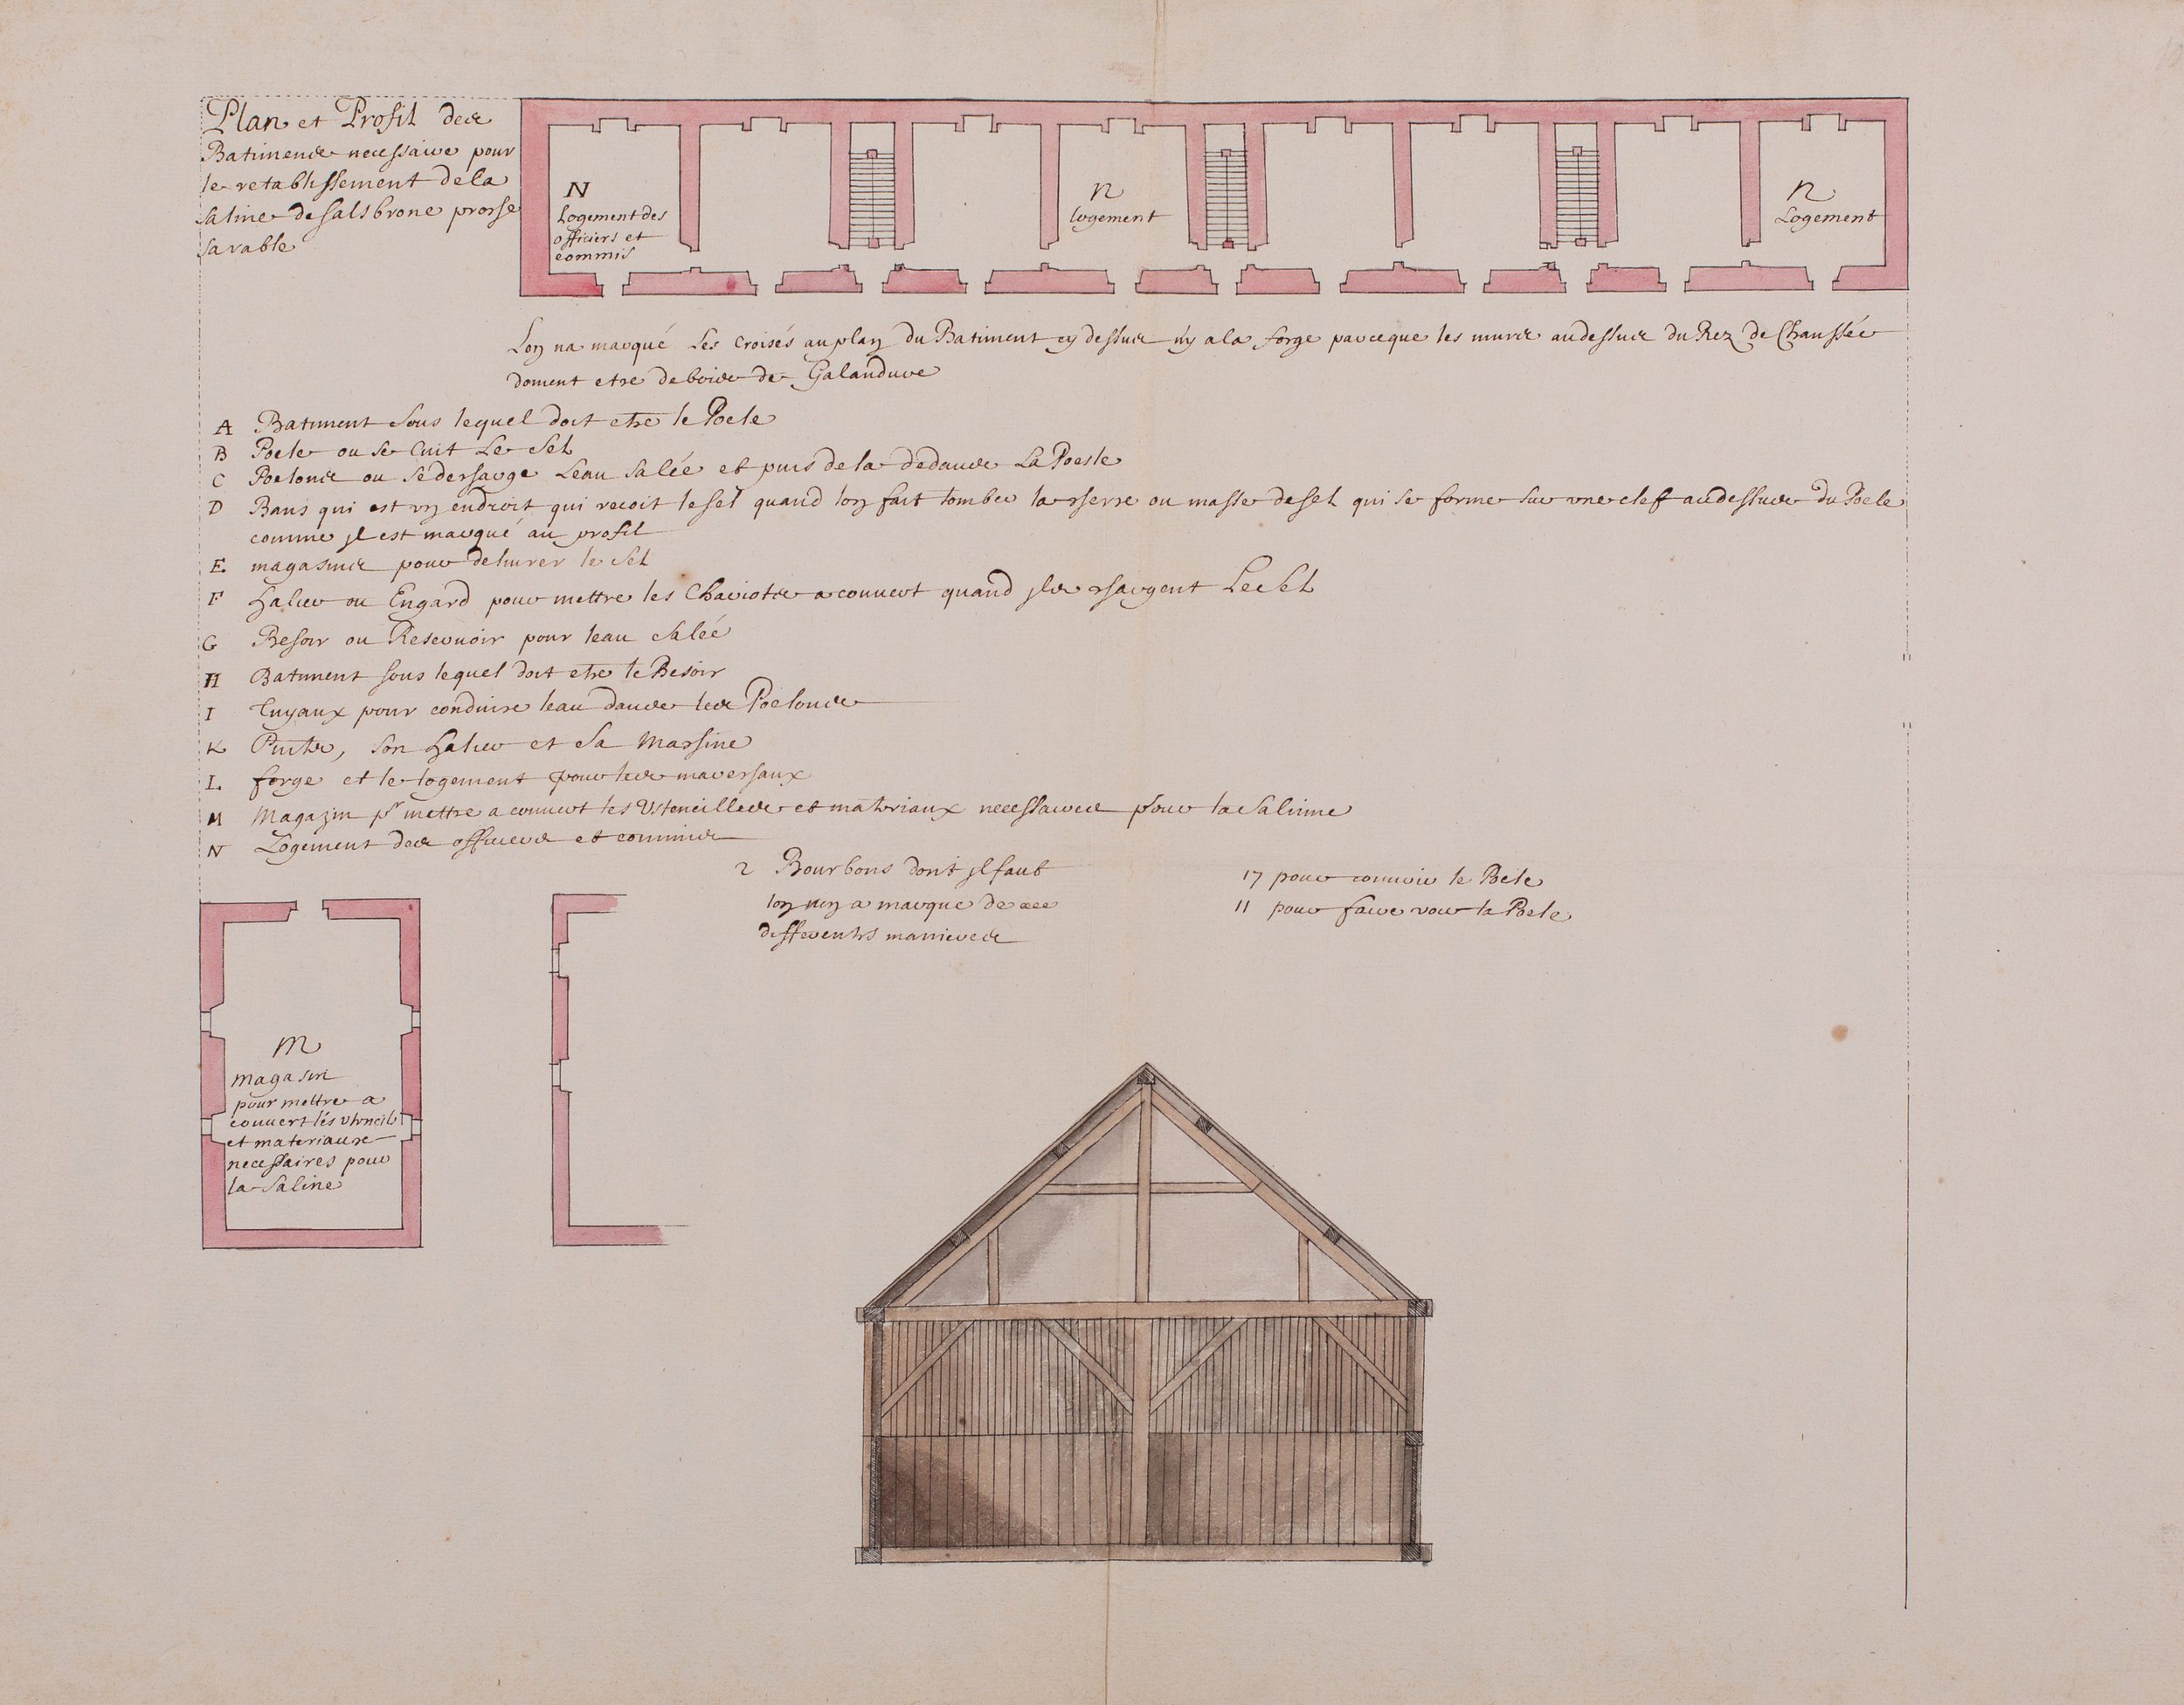 Plan et Profil des
Batimens necessaire pour
le retablissement de la
saline de salsbrone prosse
sarable
N
Logement des
officiers et
commis
n
logement
n
Logement
Lon na marqué les croisés au plan du Batiment cy dessus ny a la forge parceque les murs au dessus du Rez de Chaussée
doivent etre de bois de Galandure
A Batiment sous lequel doit etre le Poele
B Poele ou se cuit Le Sel
C Poelons ou se Leau Salée et puis de la dedans La Poesle
D Bans qui est un endroit qui recoit le sel quand lon fait tomber la ou masse de sel qui se forme sur une clef au dessus du Poele
comme jl est marqué au profil
E magasins pour delivrer le Sel
F haler ou Engard pour mettre les Chariots a couvert quand jls Le Sel
G Besoir ou Reservoir pour leau Salée
H Batiment sous lequel doit etre le Besoir
I Tuyaux pour conduire leau dans les Poelons
K Puits, son haler et Sa Massine
L. forge et le logement pour les maressaux
M Magazin pr mettre a couvert les Vstencilles et materiaux necessaires pour la Salinne
N Logement des officiers et commis
2 Bourbons dont jl faut
lon en a marque de
differents manieres
17 pour couvrir le Poele
11 pour faire voir la Poele
M
magasin
pour mettre a
couvert lés vtencils
et materiaux
necessaires pour
la Saline